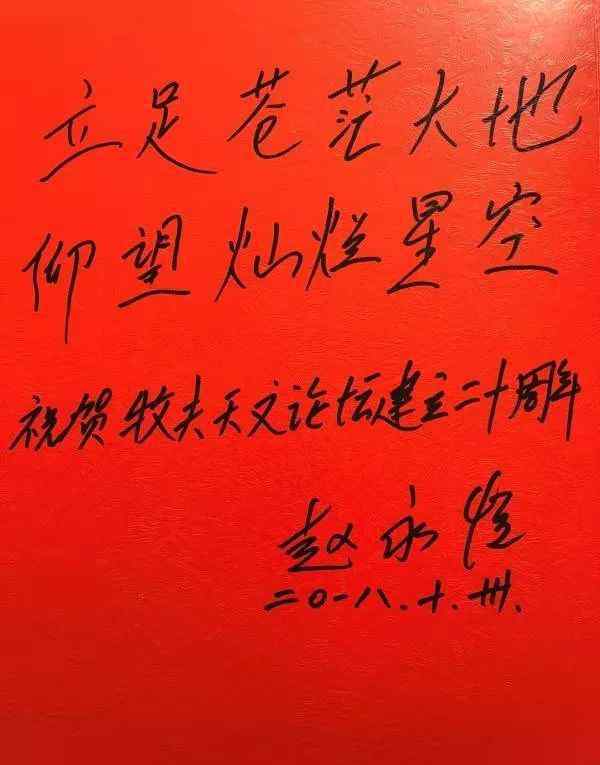 立足苍茫大地
仰望灿烂星空
祝贺牧夫天文论坛建立二十周年
赵永恒
二〇一八.十.卅.